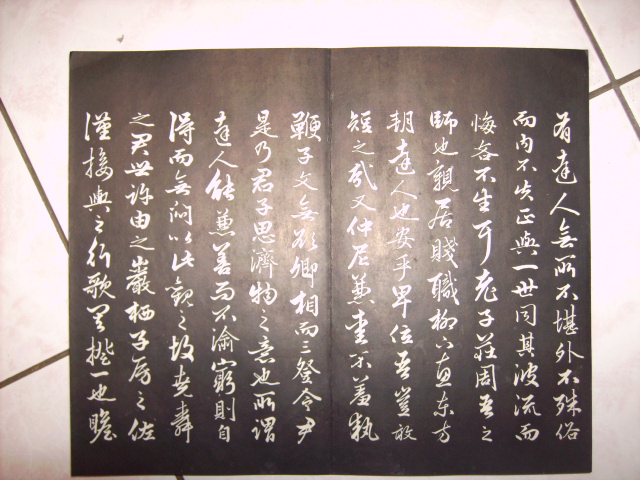 有達人無所不堪外不殊俗
而內不失正與一世同其波流而
悔吝不生耳老子莊周吾之
師也親居賤職柳下惠東方
朔達人也安乎卑位吾豈敢
短之哉又仲尼兼愛不羞執
鞭子文無欲卿相而三登令尹
是乃君子思濟物之意也所謂
達人能兼善而不渝窮則自
得而無悶以此觀之故堯舜
之君世許由之巖栖子房之佐
漢接輿之行歌其揆一也瞻